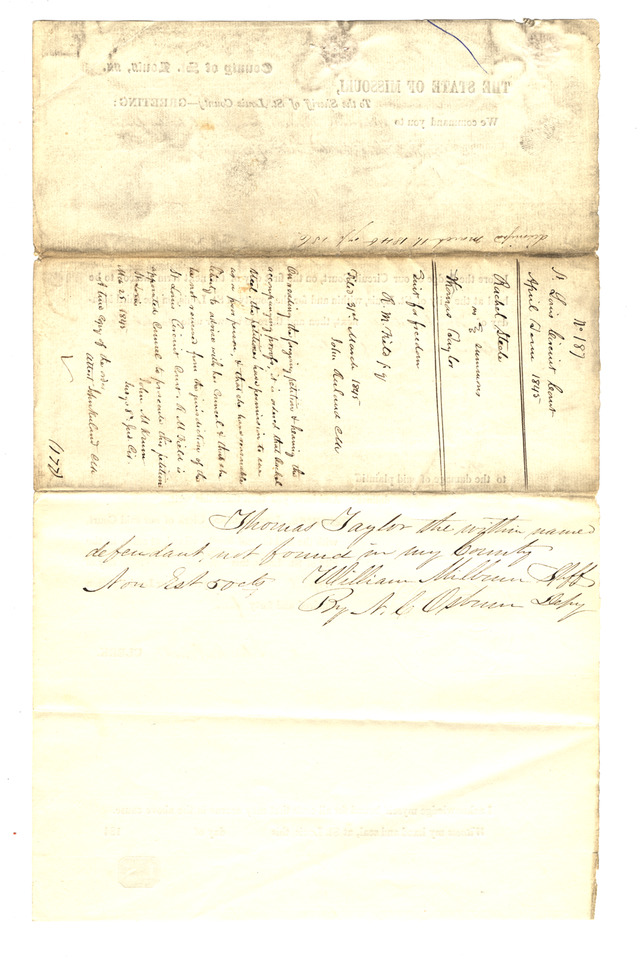 County of St. Louis, ss.
THE STATE OF MISSOURI,
To the Sheriff of St. Louis County—GREETING:
We command you to
No 187
St. Louis Circuit Court
April Term 1845
Rachel Steele
vs summons
Thomas Taylor
Suit for freedom
R. M. Field p q
Filed 31st March 1845
John Ruland Clk
On reading the forgoing petition & hearing the
accompanying proofs, it is ordered that Rachel
Steele the petitioner have permission to sue
as a poor person, & that she have reasonable
liberty to advise with her Counsel & that she
be not removed from the jurisdiction of the
St Louis Circuit Court. R. M. Field is
appointed Counsel to prosecute this petition
St Louis John M Krum
Mch 25 1845 Judge 8th Jud Cir.
A true copy of the order
Attest Jno Ruland Clk
(177)
Thomas Taylor the within named
defendant, not found in my County
Non Est 50cts William Milburn Shff
By N. C. Osburn Depy